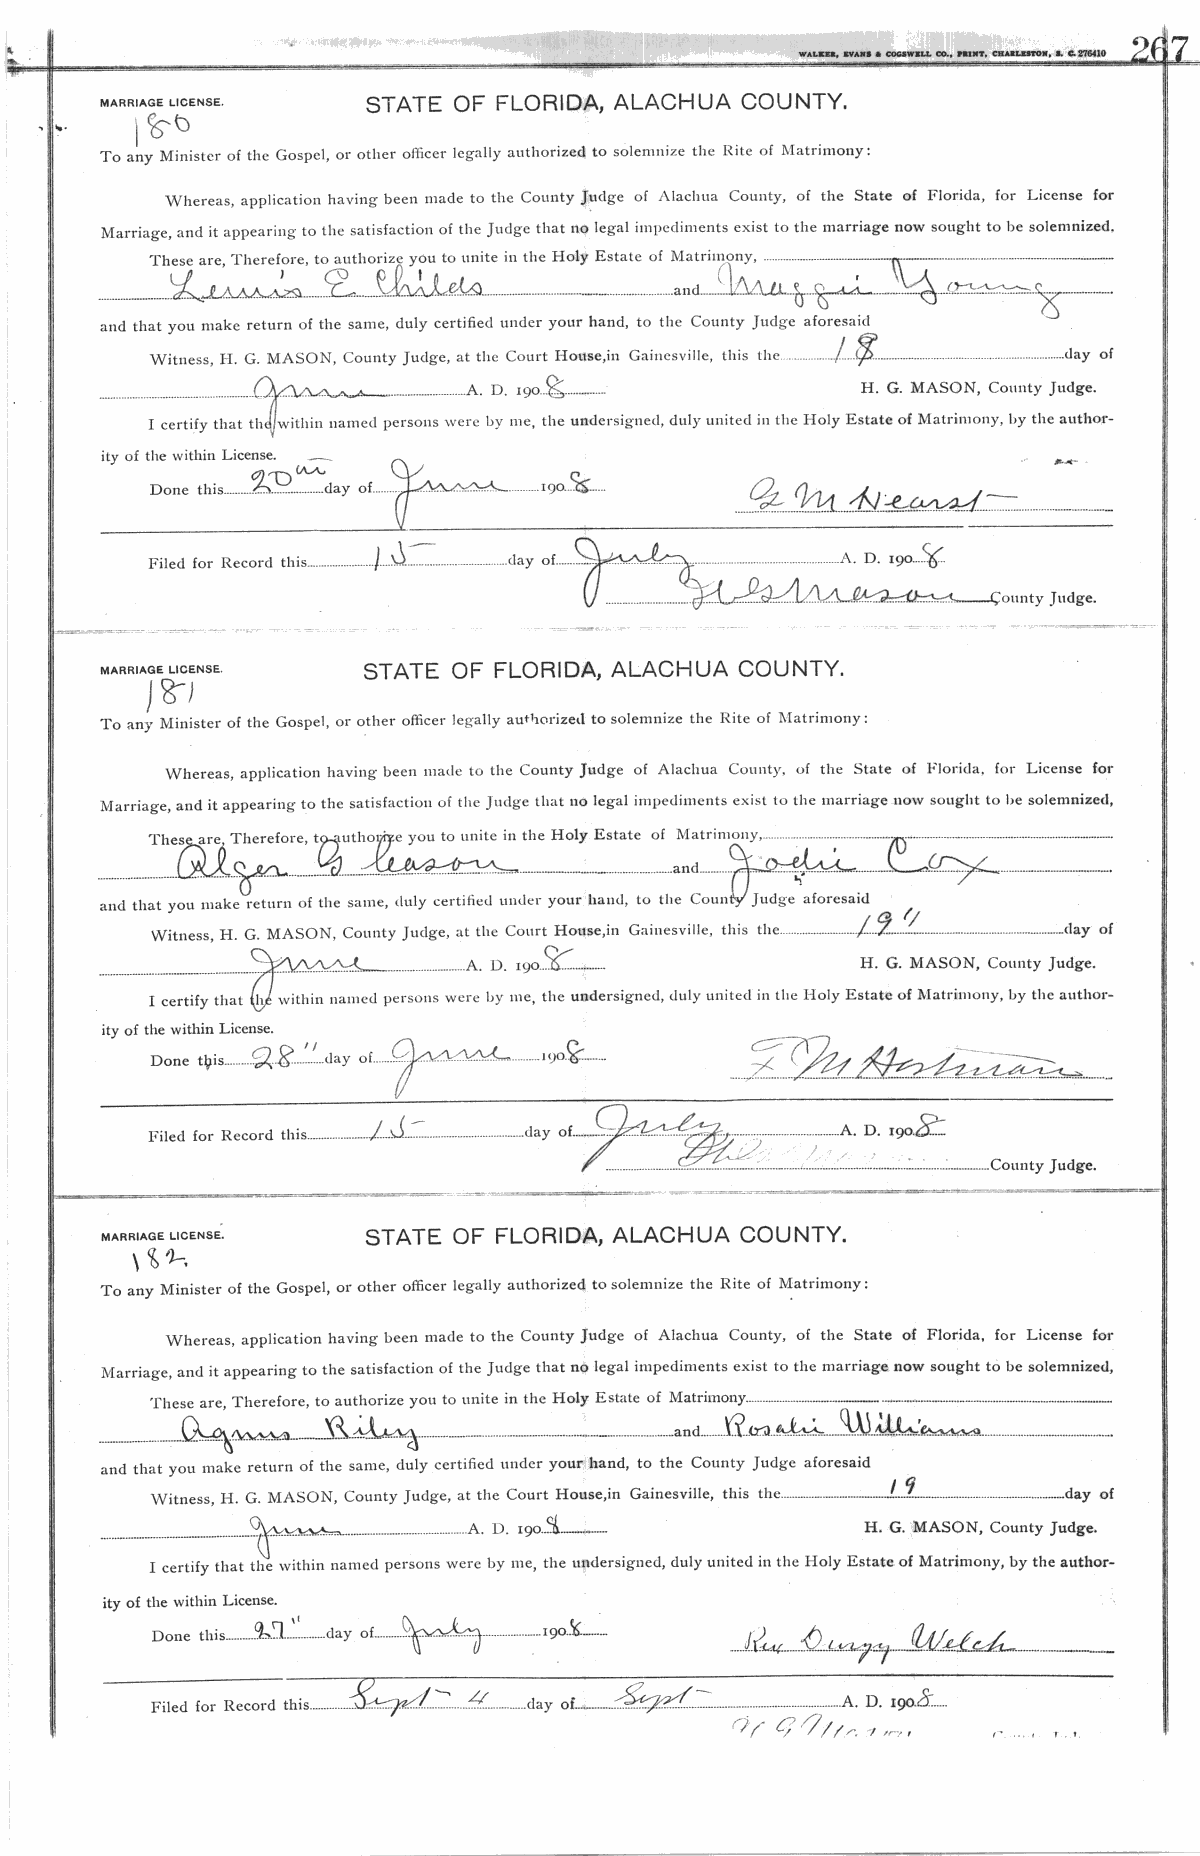 WALKER, EVANS & COGSWELL CO., PRINT, CHARLESTON, S. C. 276410 267
MARRIAGE LICENSE. STATE OF FLORIDA, ALACHUA COUNTY.
180
To any Minister of the Gospel, or other officer legally authorized to solemnize the Rite of Matrimony:
Whereas, application having been made to the County Judge of Alachua County, of the State of Florida, for License for
Marriage, and it appearing to the satisfaction of the Judge that no legal impediments exist to the marriage now sought to be solemnized.
These are, Therefore, to authorize you to unite in the Holy Estate of Matrimony,
Lewis E Childs and Maggie Young
and that you make return of the same, duly certified under your hand, to the County Judge aforesaid
Witness, H. G. MASON, County Judge, at the Court House, in Gainesville, this the 18 day of
June A. D. 1908 H. G. MASON, County Judge.
I certify that the within named persons were by me, the undersigned, duly united in the Holy Estate of Matrimony, by the author-
ity of the within License.
Done this 20th day of June 1908 G M Hearst
Filed for Record this 15 day of July A. D. 1908
H G Mason County Judge.
MARRIAGE LICENSE. STATE OF FLORIDA, ALACHUA COUNTY.
181
To any Minister of the Gospel, or other officer legally authorized to solemnize the Rite of Matrimony:
Whereas, application having been made to the County Judge of Alachua County, of the State of Florida, for License for
Marriage, and it appearing to the satisfaction of the Judge that no legal impediments exist to the marriage now sought to be solemnized,
These are, Therefore, to authorize you to unite in the Holy Estate of Matrimony,
Alger Gleason and Jodie Cox
and that you make return of the same, duly certified under your hand, to the County Judge aforesaid
Witness, H. G. MASON, County Judge, at the Court House, in Gainesville, this the 19" day of
June A. D. 1908 H. G. MASON, County Judge.
I certify that the within named persons were by me, the undersigned, duly united in the Holy Estate of Matrimony, by the author-
ity of the within License.
Done this 28" day of June 1908 F M Hortman
Filed for Record this 15 day of July A. D. 1908
County Judge.
MARRIAGE LICENSE. STATE OF FLORIDA, ALACHUA COUNTY.
182.
To any Minister of the Gospel, or other officer legally authorized to solemnize the Rite of Matrimony:
Whereas, application having been made to the County Judge of Alachua County, of the State of Florida, for License for
Marriage, and it appearing to the satisfaction of the Judge that no legal impediments exist to the marriage now sought to be solemnized,
These are, Therefore, to authorize you to unite in the Holy Estate of Matrimony
Agnus Riley and Rosalie Williams
and that you make return of the same, duly certified under your hand, to the County Judge aforesaid
Witness, H. G. MASON, County Judge, at the Court House, in Gainesville, this the 19 day of
June A. D. 1908 H. G. MASON, County Judge.
I certify that the within named persons were by me, the undersigned, duly united in the Holy Estate of Matrimony, by the author-
ity of the within License.
Done this 27" day of July 1908 Rev Welch
Filed for Record this Sept 4 day of Sept A. D. 1908
H G Mason